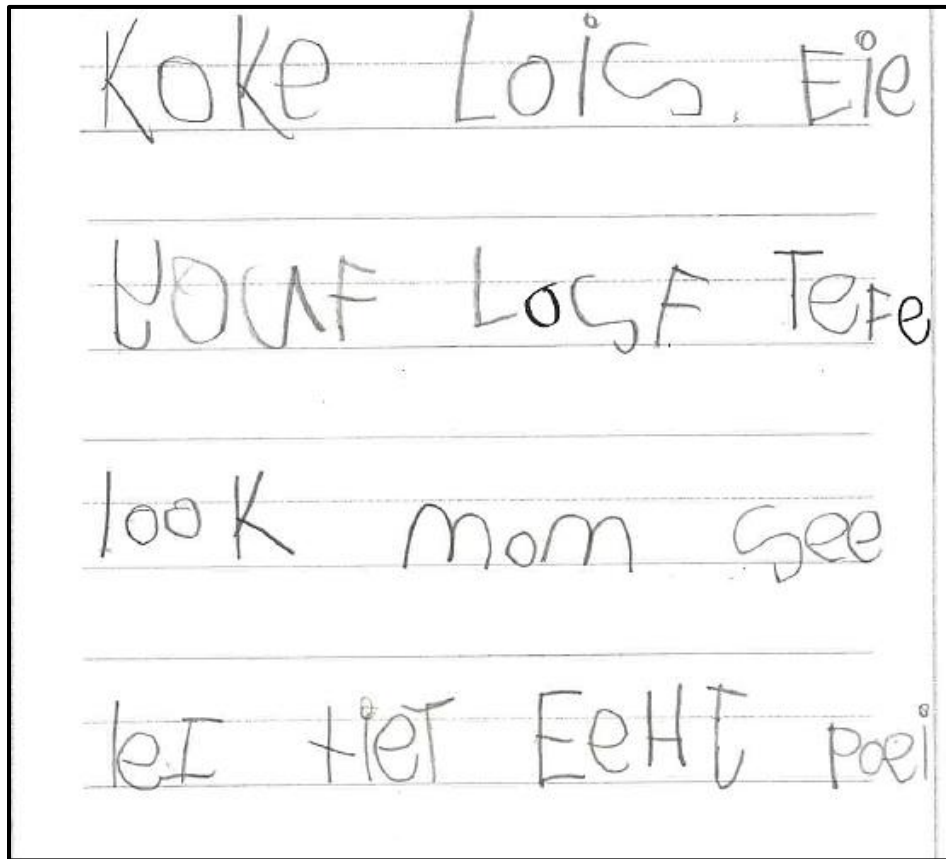 KoKe LoiS. Eie
YouF LoSF TeFe
look mom See
leI tieT EeHT Poei